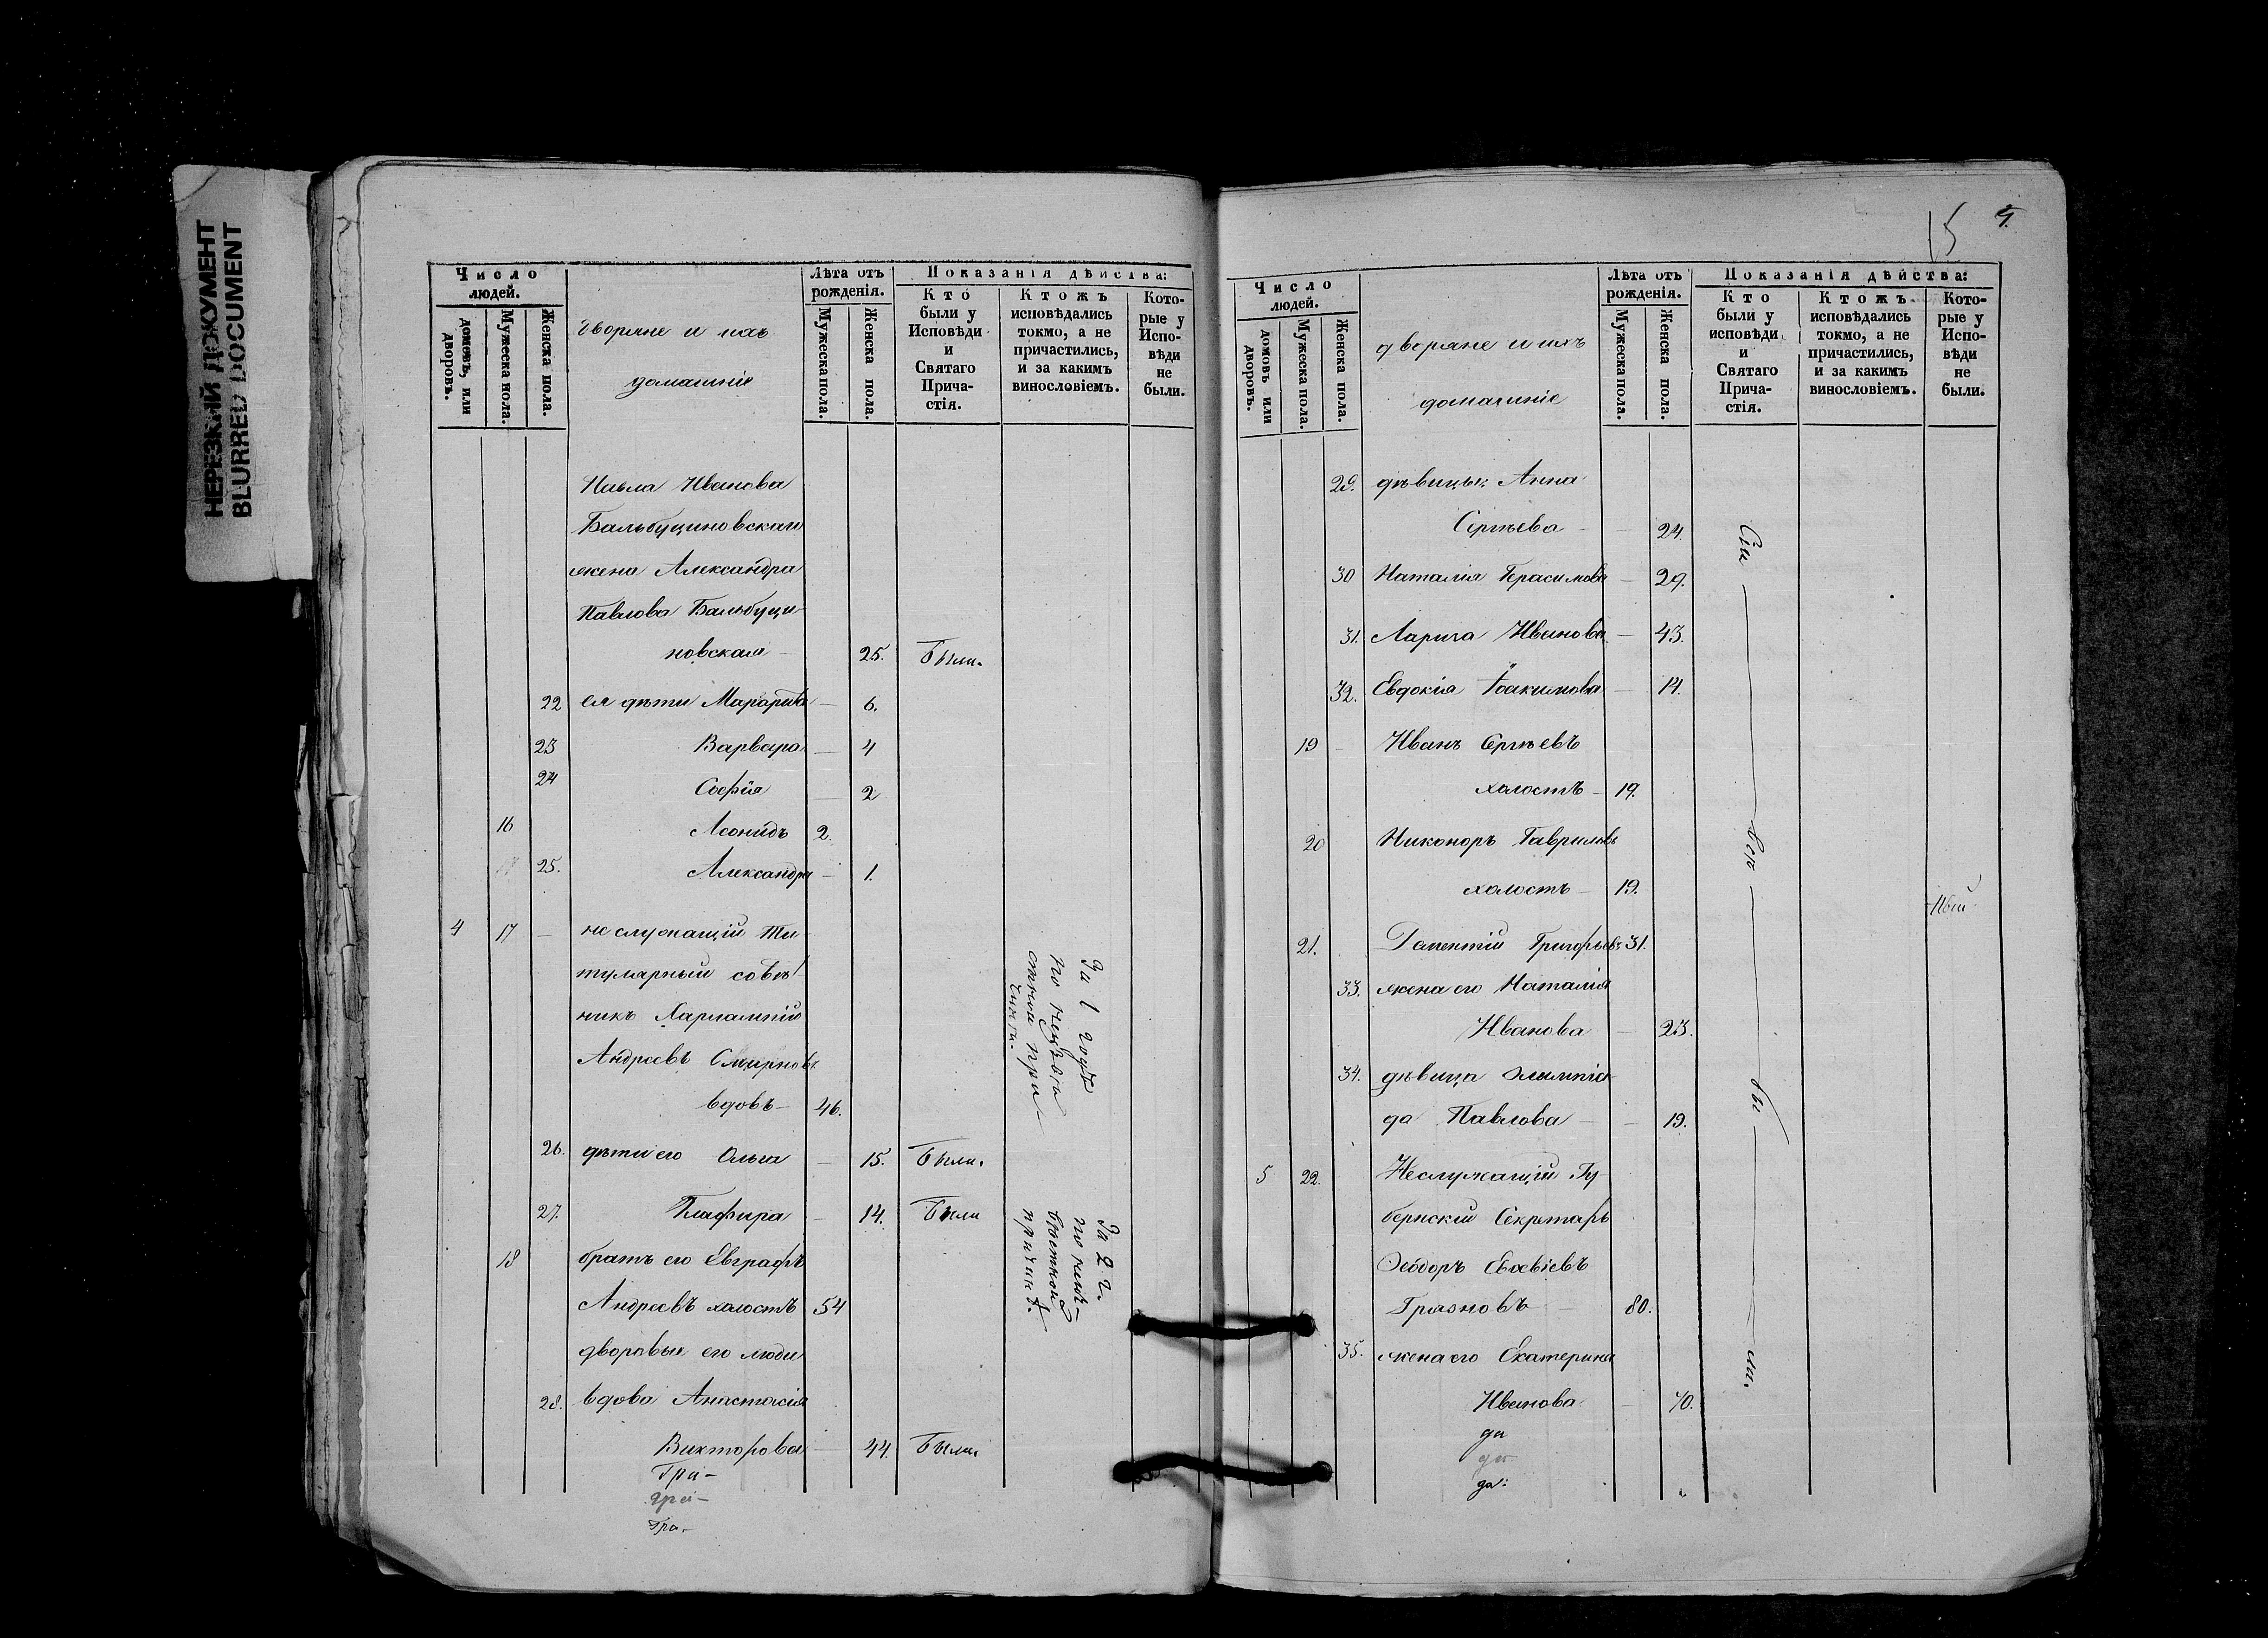 НЕРЕЗКИЙ ДОКУМЕНТ
BLURRED DOCUMENT
Число людей.
домовъ, или дворовъ.
Мужеска пола.
Женска пола.
дворяне и ихъ
домашніе
Лѣта отъ рожденія.
Мужеска пола.
Женска пола.
Показанія дѣйства:
Кто были у Исповѣди и Святаго Прича-стія.
Ктожъ исповѣдались токмо, а не причастились, и за какимъ винословіемъ.
Кото-рые у Испо-вѣди не были.
Иванова
Бальбуциновскаго
жена Александра
Павлова Бальбуци-
новская 25. Были.
22 ея дѣти Маргарита — 6.
23 Варвара — 4
24 Софія — 2
16 Леонидъ 2.
25. Александра — 1.
4 17 — неслужащій Ти-
тулярный совѣт-
никъ Харлампій
Андреевъ Смирновъ
вдовъ — 46.
За 1 годъ
по неизвѣ
стной при
чинѣ.
26. дѣти его Ольга — 15. Были.
27. Глафира — 14. Были
18 братъ его Евграфъ
Андреевъ холостъ 54
За 2 г.
по неизв-
вѣстной
причинѣ.
дворовые его люди
28. вдова Анастасія
Викторова — 44. Были.
Гра-
гра-
Гра-
15 9.
Число людей.
домовъ или дворовъ.
Мужеска пола.
Женска пола.
дворяне и ихъ
домашніе
Лѣта отъ рожденія.
Мужеска пола.
Женска пола.
Показанія дѣйства:
Кто были у исповѣди и Святаго Прича-стія.
Ктожъ исповѣдались токмо, а не причастились, и за какимъ винословіемъ.
Кото-рые у Испо-вѣди не были.
29. дѣвицы: Анна
Сергѣева — 24.
30 Наталія Герасимова — 29.
31. Лариса Иванова — 43.
32. Евдокія Іоакимова — 14.
19 — Иванъ Сергѣевъ
холостъ — 19.
20 Никоноръ Гавриловъ
холостъ — 19.
21. Григорьевъ 31.
33. жена его Наталія
Иванова — 23.
34. дѣвица Олимпіа-
да Павлова — 19.
5 22. Неслужащій Гу
бернскій Секретарь
Ѳеодоръ Евсевіевъ
Грязновъ — 80.
35. жена его Екатерина
Иванова — 70.
Сіи — всѣ — бы — ли.
да
да
да: